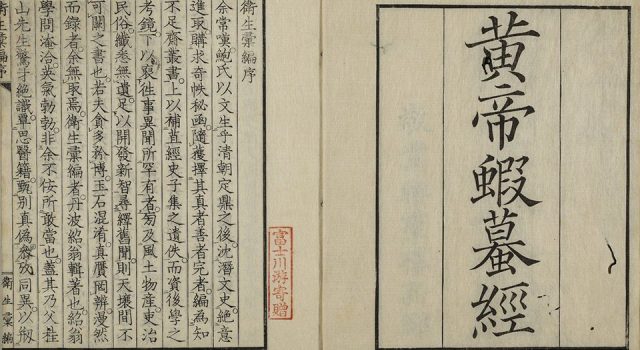 黄帝蝦蟇經
富士川游寄贈
衛生彙編序
余常嘆鮑氏以文生乎清朝定鼎之後沈潛文史絶意
進取購求奇帙秘函隨獲擇其真者善者完者編為知
不足齋叢書上以補苴經史子集之遺佚而資後學之
考鏡下以裒往事異聞所罕有者苟及風土物産吏治
民俗纖巻無遺足以開發新智尋繹舊聞則天壤間不
可闕之書也若夫貪多矜博玉石混淆真贋罔辨漫然
而録者余無取焉衛生彙編者丹波紹翁輯著也紹翁
學問淹洽英氣勃勃非余不佞所敢當也蓋其乃父桂
山先生驚才絶識覃思醫籍甄别真偽參攷同異以刱
衛生彙編序
衛生彙編